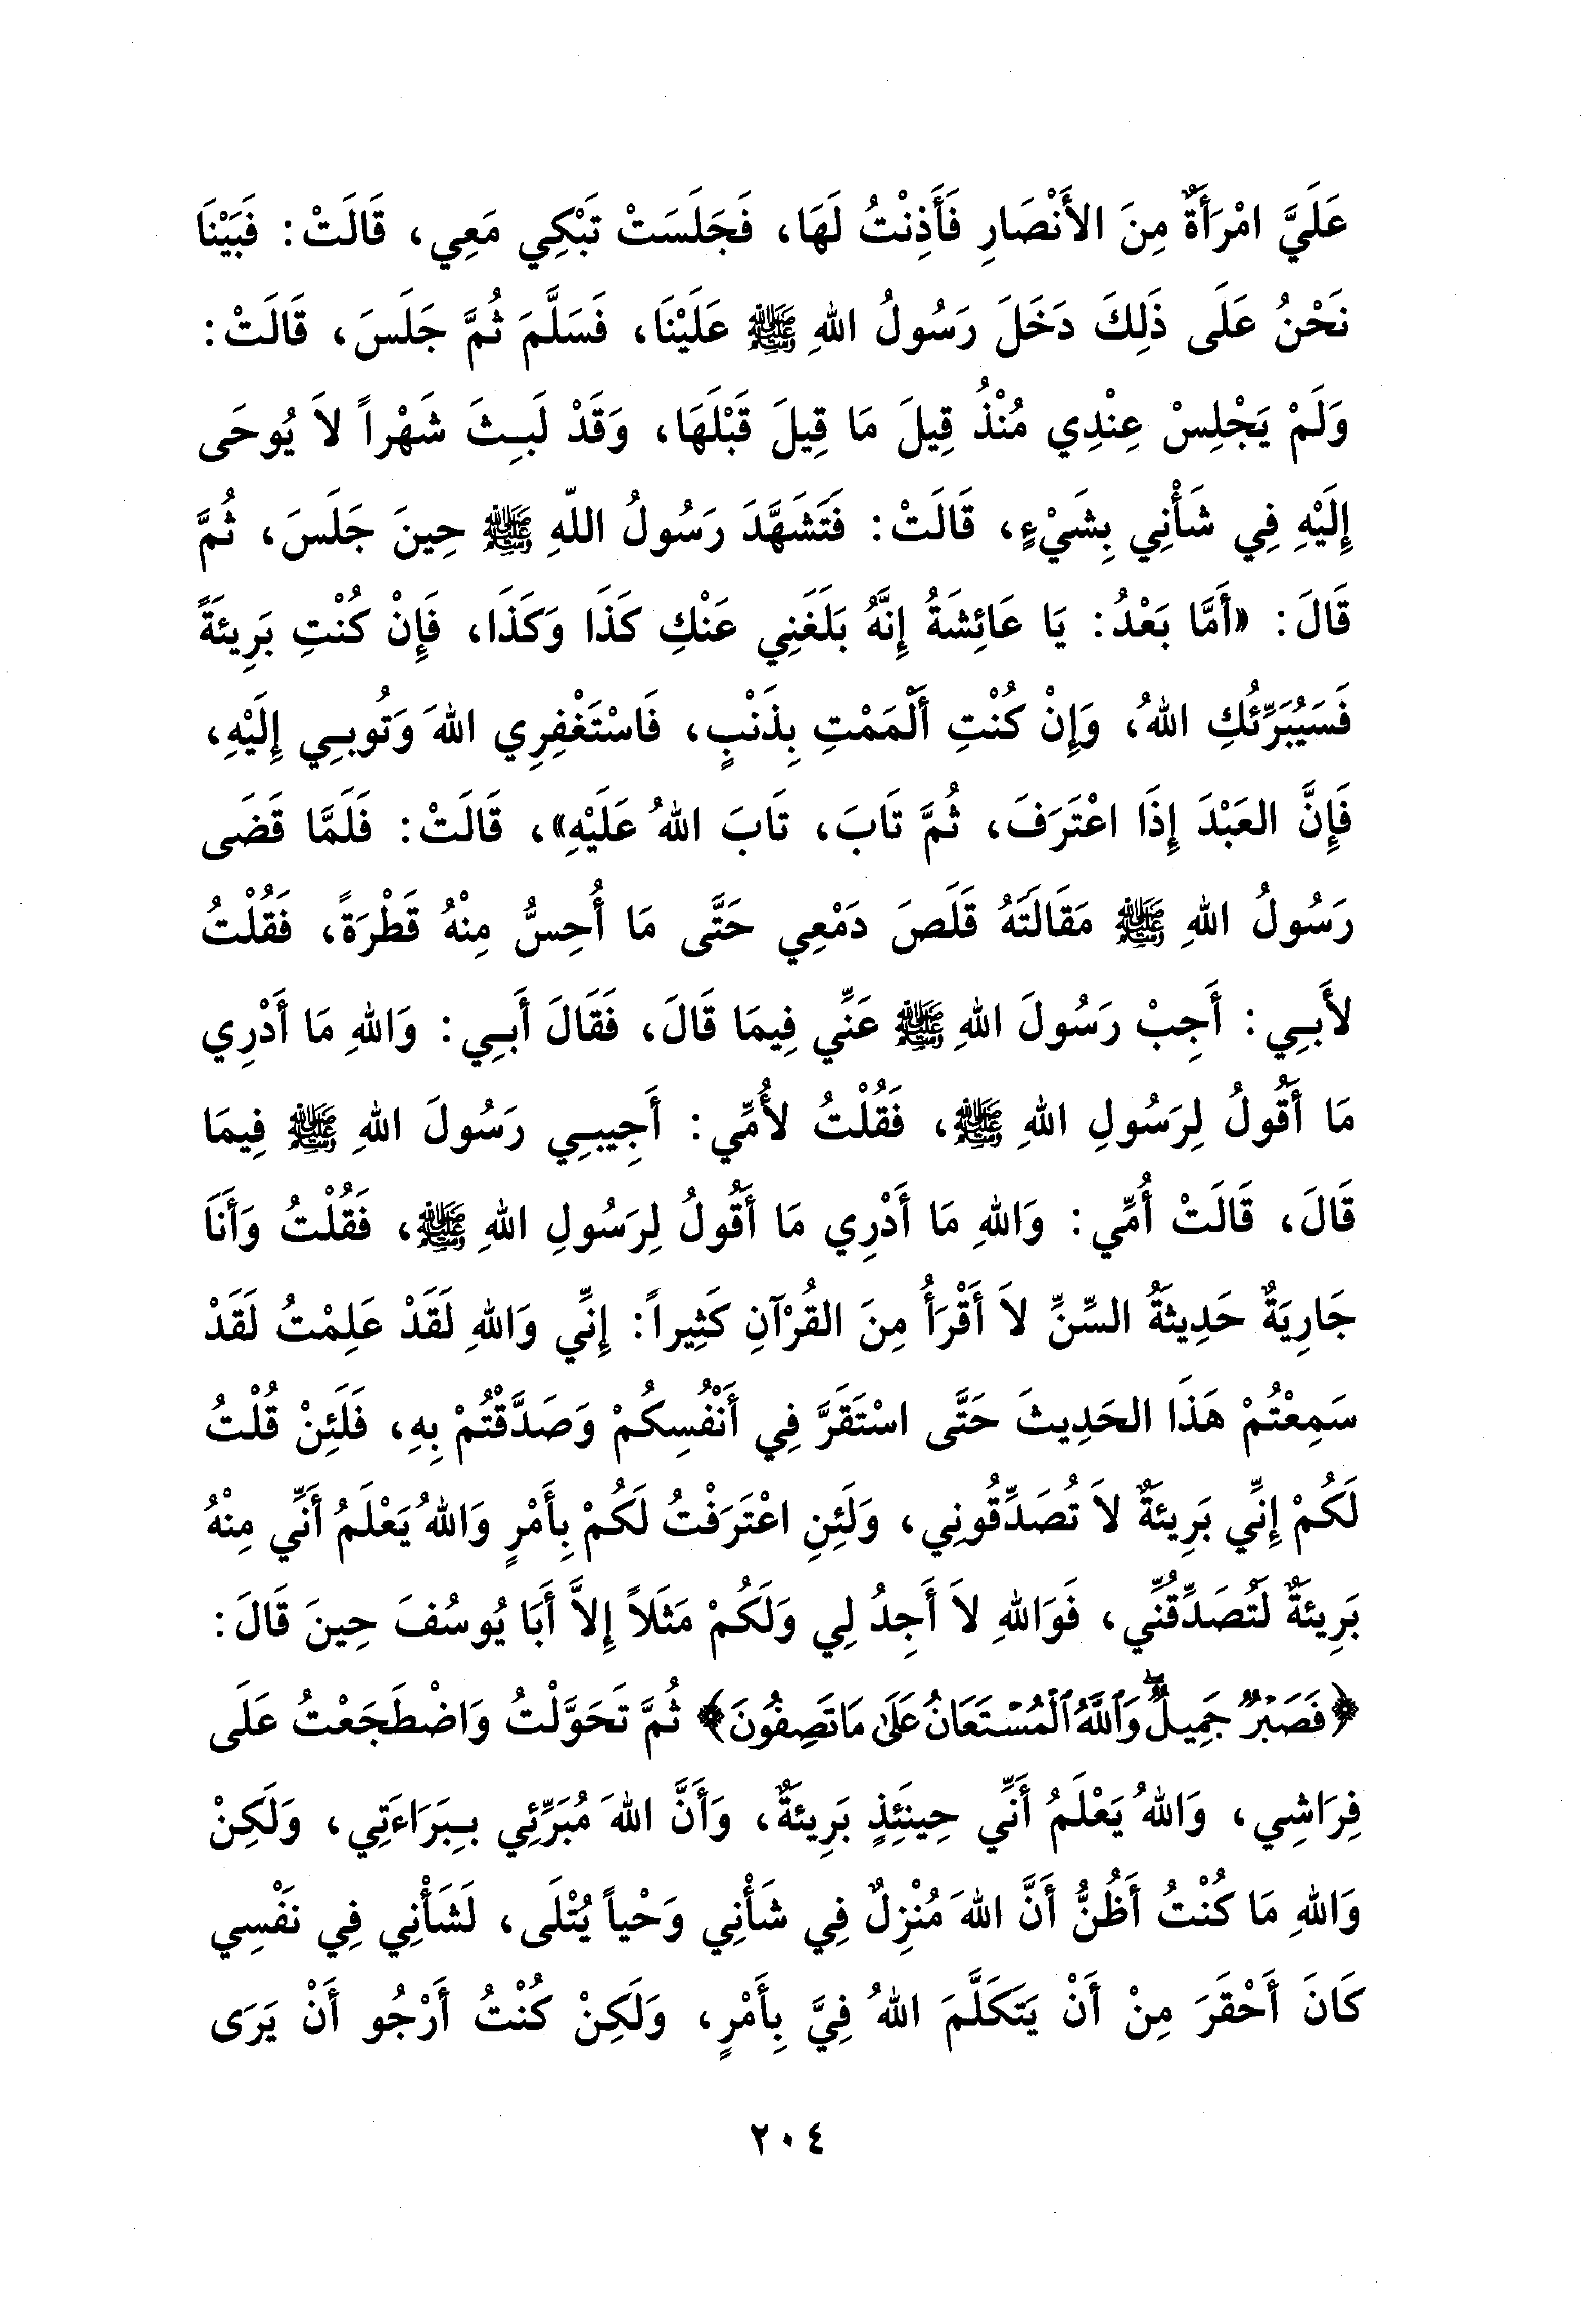 عَلَيَّ امْرَأَةٌ مِنَ الأَنْصَارِ فَأَذِنْتُ لَهَا، فَجَلَسَتْ تَبْكِي مَعِي، قَالَتْ: فَبَيْنَا
نَحْنُ عَلَى ذَلِكَ دَخَلَ رَسُولُ اللهِ ﷺ عَلَيْنَا، فَسَلَّمَ ثُمَّ جَلَسَ، قَالَتْ:
وَلَمْ يَجْلِسْ عِنْدِي مُنْذُ قِيلَ مَا قِيلَ قَبْلَهَا، وَقَدْ لَبِثَ شَهْراً لاَ يُوحَى
إِلَيْهِ فِي شَأْنِي بِشَيْءٍ، قَالَتْ: فَتَشَهَّدَ رَسُولُ اللّهِ ﷺ حِينَ جَلَسَ، ثُمَّ
قَالَ: «أَمَّا بَعْدُ: يَا عَائِشَةُ إِنَّهُ بَلَغَنِي عَنْكِ كَذَا وَكَذَا، فَإِنْ كُنْتِ بَرِيئَةً
فَسَيُبَرِّئُكِ اللهُ، وَإِنْ كُنْتِ أَلْمَمْتِ بِذَنْبٍ، فَاسْتَغْفِرِي اللهَ وَتُوبِي إِلَيْهِ،
فَإِنَّ العَبْدَ إِذَا اعْتَرَفَ، ثُمَّ تَابَ، تَابَ اللهُ عَلَيْهِ»، قَالَتْ: فَلَمَّا قَضَى
رَسُولُ اللهِ ﷺ مَقَالَتَهُ قَلَصَ دَمْعِي حَتَّى مَا أُحِسُّ مِنْهُ قَطْرَةً، فَقُلْتُ
لأَبِي: أَجِبْ رَسُولَ اللهِ ﷺ عَنِّي فِيمَا قَالَ، فَقَالَ أَبِي: وَاللهِ مَا أَدْرِي
مَا أَقُولُ لِرَسُولِ اللهِ ﷺ، فَقُلْتُ لأُمِّي: أَجِيبِي رَسُولَ اللهِ ﷺ فِيمَا
قَالَ، قَالَتْ أُمِّي: وَاللهِ مَا أَدْرِي مَا أَقُولُ لِرَسُولِ اللهِ ﷺ، فَقُلْتُ وَأَنَا
جَارِيَةٌ حَدِيثَةُ السِّنِّ لاَ أَقْرَأُ مِنَ القُرْآنِ كَثِيراً: إِنِّي وَاللهِ لَقَدْ عَلِمْتُ لَقَدْ
سَمِعْتُمْ هَذَا الحَدِيثَ حَتَّى اسْتَقَرَّ فِي أَنْفُسِكُمْ وَصَدَّقْتُمْ بِهِ، فَلَئِنْ قُلْتُ
لَكُمْ إِنِّي بَرِيئَةٌ لاَ تُصَدِّقُونِي، وَلَئِنِ اعْتَرَفْتُ لَكُمْ بِأَمْرٍ وَاللهُ يَعْلَمُ أَنِّي مِنْهُ
بَرِيئَةٌ لَتُصَدِّقُنِّي، فَوَاللهِ لاَ أَجِدُ لِي وَلَكُمْ مَثَلاً إِلاَّ أَبَا يُوسُفَ حِينَ قَالَ:
﴿فَصَبْرٌ جَمِيلٌ ۖ وَٱللَّهُ ٱلْمُسْتَعَانُ عَلَىٰ مَا تَصِفُونَ﴾ ثُمَّ تَحَوَّلْتُ وَاضْطَجَعْتُ عَلَى
فِرَاشِي، وَاللهُ يَعْلَمُ أَنِّي حِينَئِذٍ بَرِيئَةٌ، وَأَنَّ اللهَ مُبَرِّئِي بِبَرَاءَتِي، وَلَكِنْ
وَاللهِ مَا كُنْتُ أَظُنُّ أَنَّ اللهَ مُنْزِلٌ فِي شَأْنِي وَحْياً يُتْلَى، لَشَأْنِي فِي نَفْسِي
كَانَ أَحْقَرَ مِنْ أَنْ يَتَكَلَّمَ اللهُ فِيَّ بِأَمْرٍ، وَلَكِنْ كُنْتُ أَرْجُو أَنْ يَرَى
٢٠٤